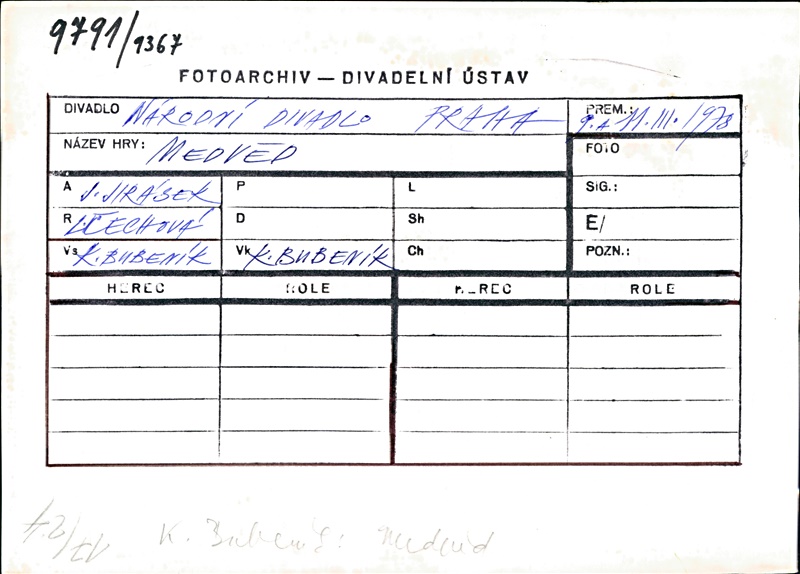 9791/9367
FOTOARCHIV — DIVADELNÍ ÚSTAV
DIVADLO NÁRODNÍ DIVADLO PRAHA PREM.: 9. a 11. III. /978
NÁZEV HRY: MEDVĚD FOTO
A J. JIRÁSEK P L SIG.:
R ČECHOVÁ D Sh É/
Vs K. BUBENÍK Vk K. BUBENÍK Ch POZN.:
HEREC ROLE HEREC ROLE
K. Bubeník: Medvěd